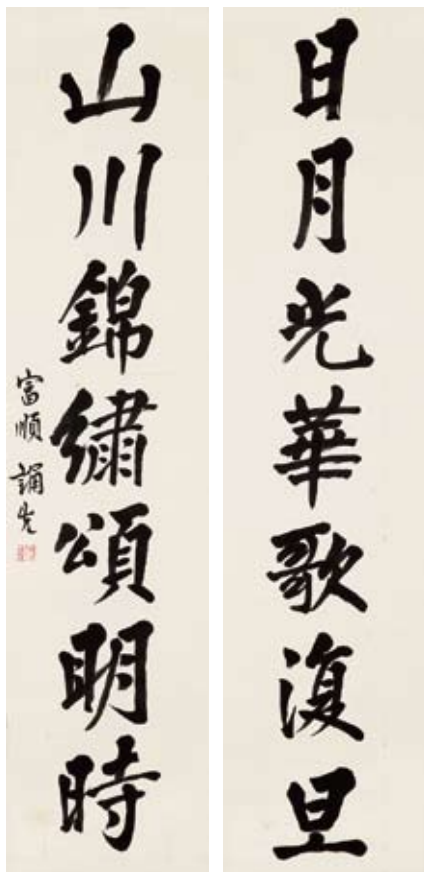 日月光華歌復旦
山川錦繡頌明時
富順 誦先